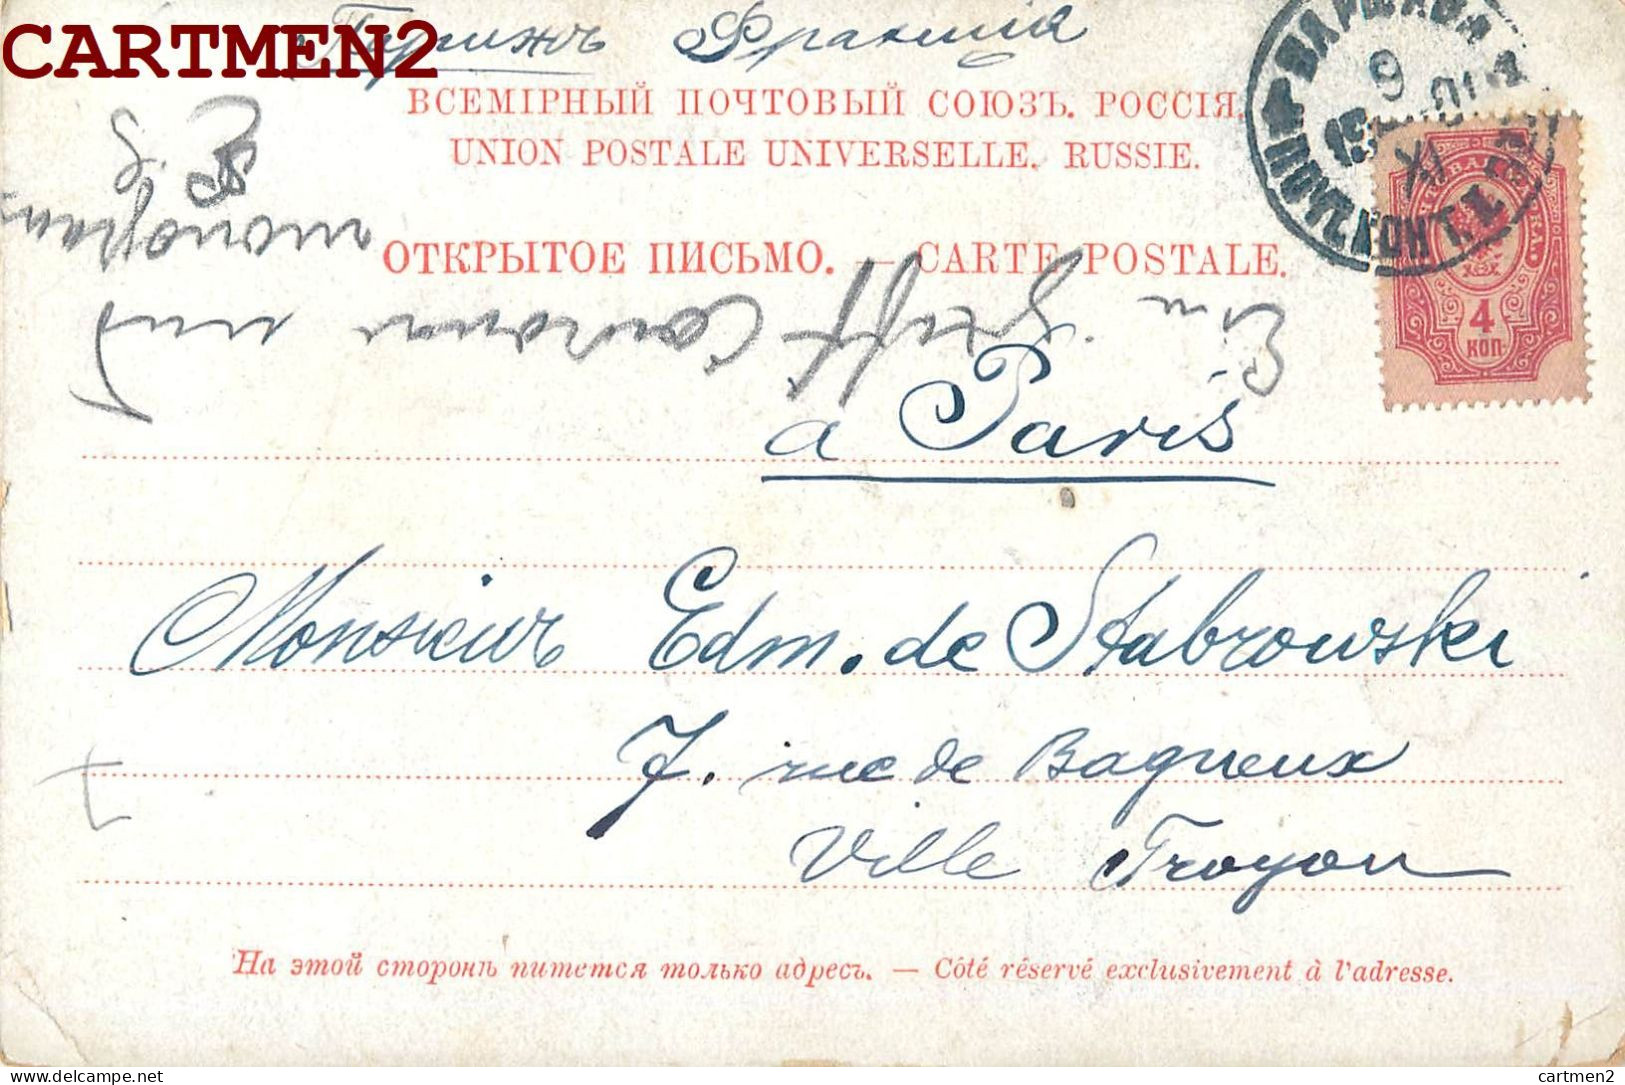 CARTMEN2
Парижъ Франція
ВСЕМІРНЫЙ ПОЧТОВЫЙ СОЮЗЪ. РОССІЯ.
UNION POSTALE UNIVERSELLE. RUSSIE.
ОТКРЫТОЕ ПИСЬМО. — CARTE POSTALE.
ВАРШАВА
9
XI
ПОЧТ. КОНТ.
4
КОП
Ein
und
a Paris
Monsieur Edm. de Stabrowski
7. rue de Bagneux
Ville Troyon
На этой сторонѣ пишется только адресъ. — Côté réservé exclusivement à l'adresse.
delcampe.net
cartmen2